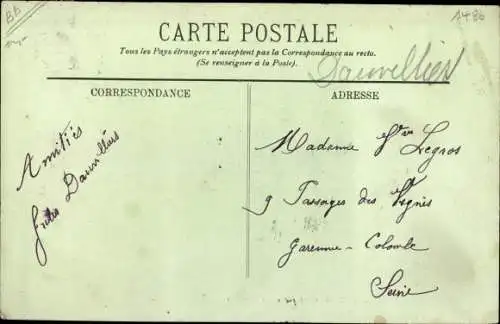 BB
1486
CARTE POSTALE
Tous les Pays étrangers n'acceptent pas la Correspondance au recto.
(Se renseigner à la Poste).
Dauvilliers
CORRESPONDANCE
ADRESSE
Amitiés
Dauvilliers
Madame Vve Legros
9 Passages des Vignes
Garenne-Colombe
Seine